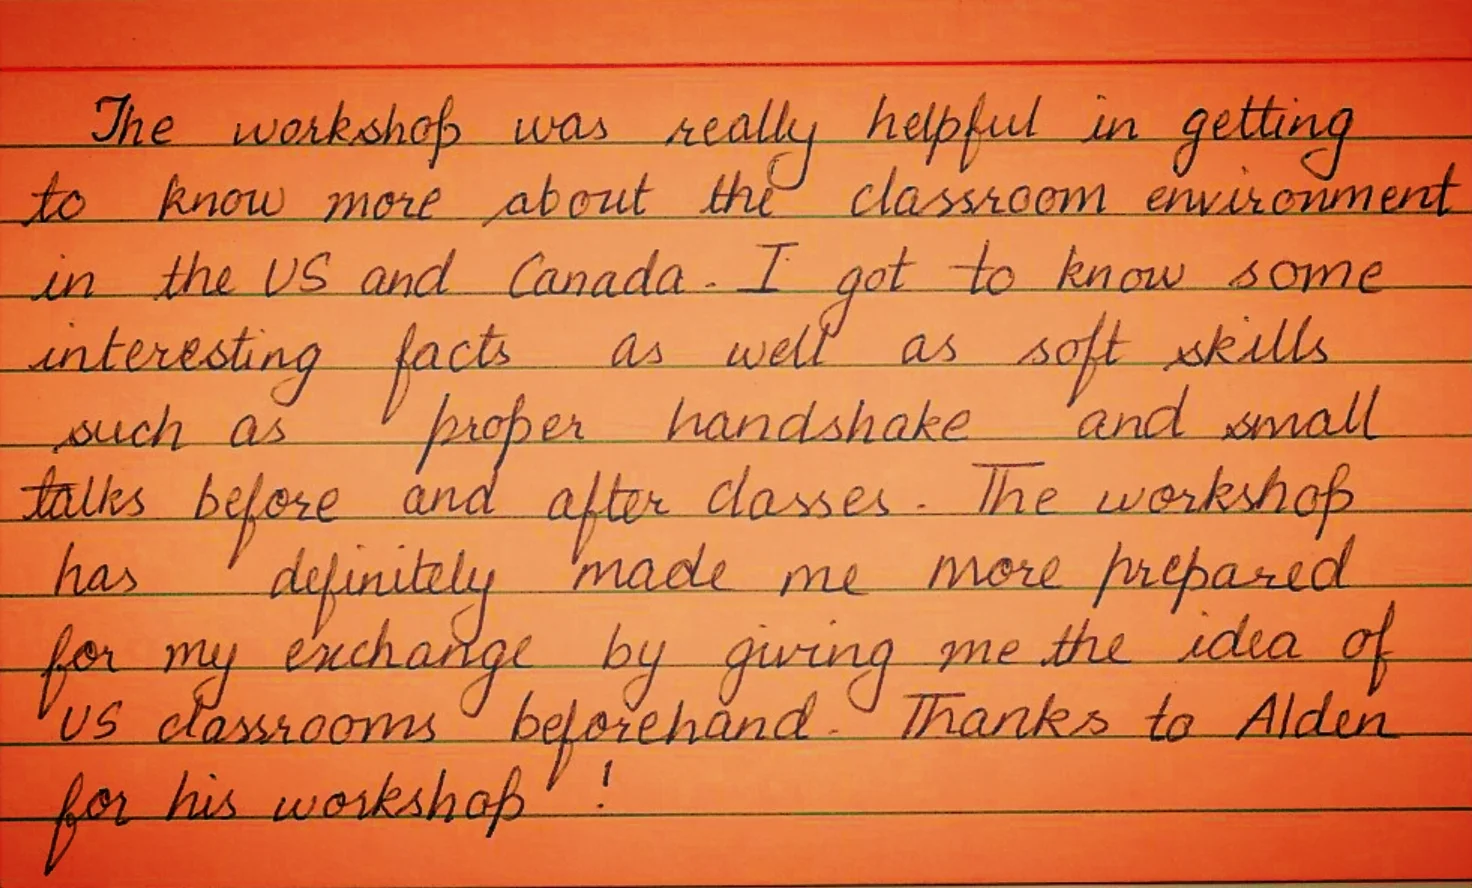 The workshop was really helpful in getting
to know more about the classroom environment
in the US and Canada. I got to know some
interesting facts as well as soft skills
such as proper handshake and small
talks before and after classes. The workshop
has definitely made me more prepared
for my exchange by giving me the idea of
US classrooms beforehand. Thanks to Alden
for his workshop !